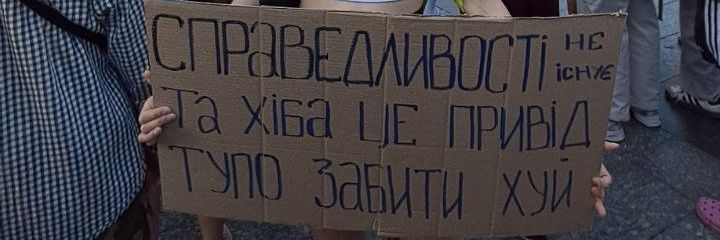 СПРАВЕДЛИВОСТІ НЕ ІСНУЄ
ТА ХІБА ЦЕ ПРИВІД
ТУПО ЗАБИТИ ХУЙ